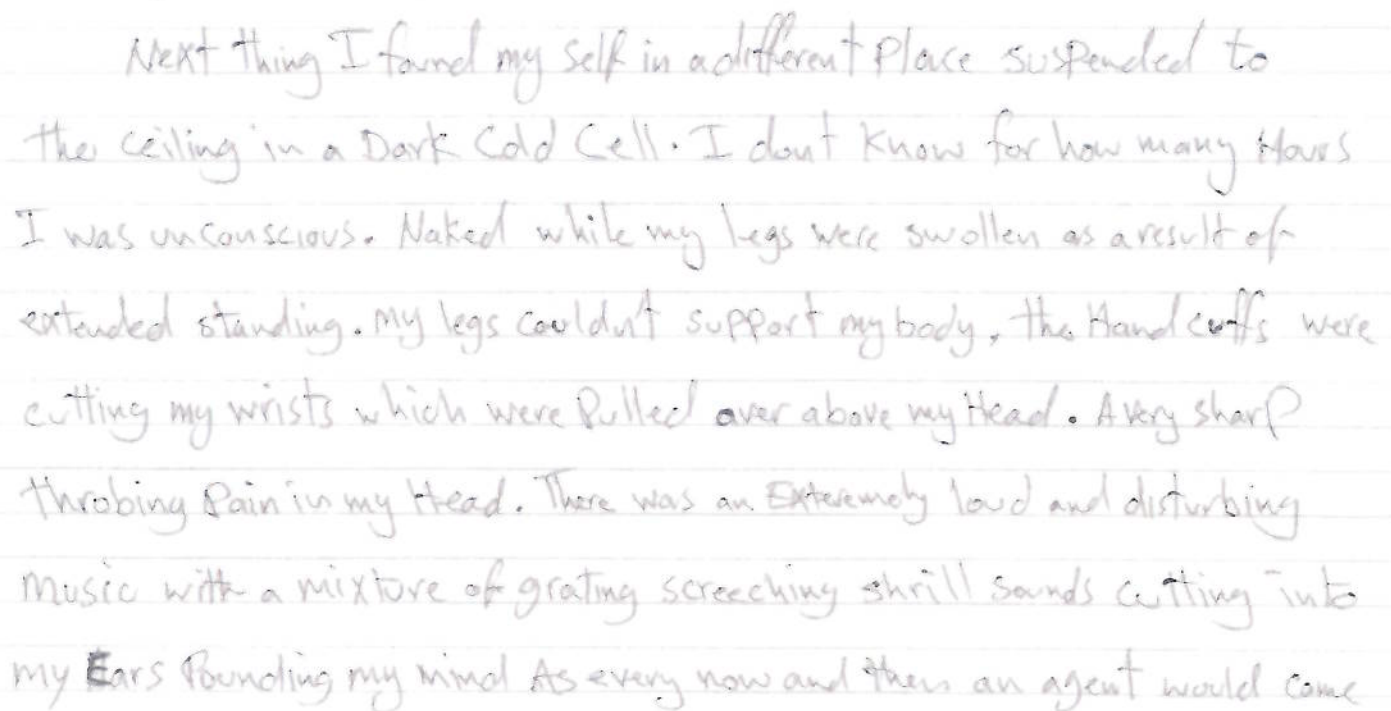 Next thing I found my self in a different Place suspended to
the ceiling in a Dark Cold Cell. I dont Know for how many Hours
I was unconscious. Naked while my legs were swollen as a result of
extended standing. My legs couldn't support my body, the Hand cuffs were
cutting my wrists which were Pulled over above my Head. A very sharp
throbing Pain in my Head. There was an Exteremely loud and disturbing
Music with a mixture of grating screeching shrill sounds cutting into
my Ears Pounding my mind As every now and then an agent would come